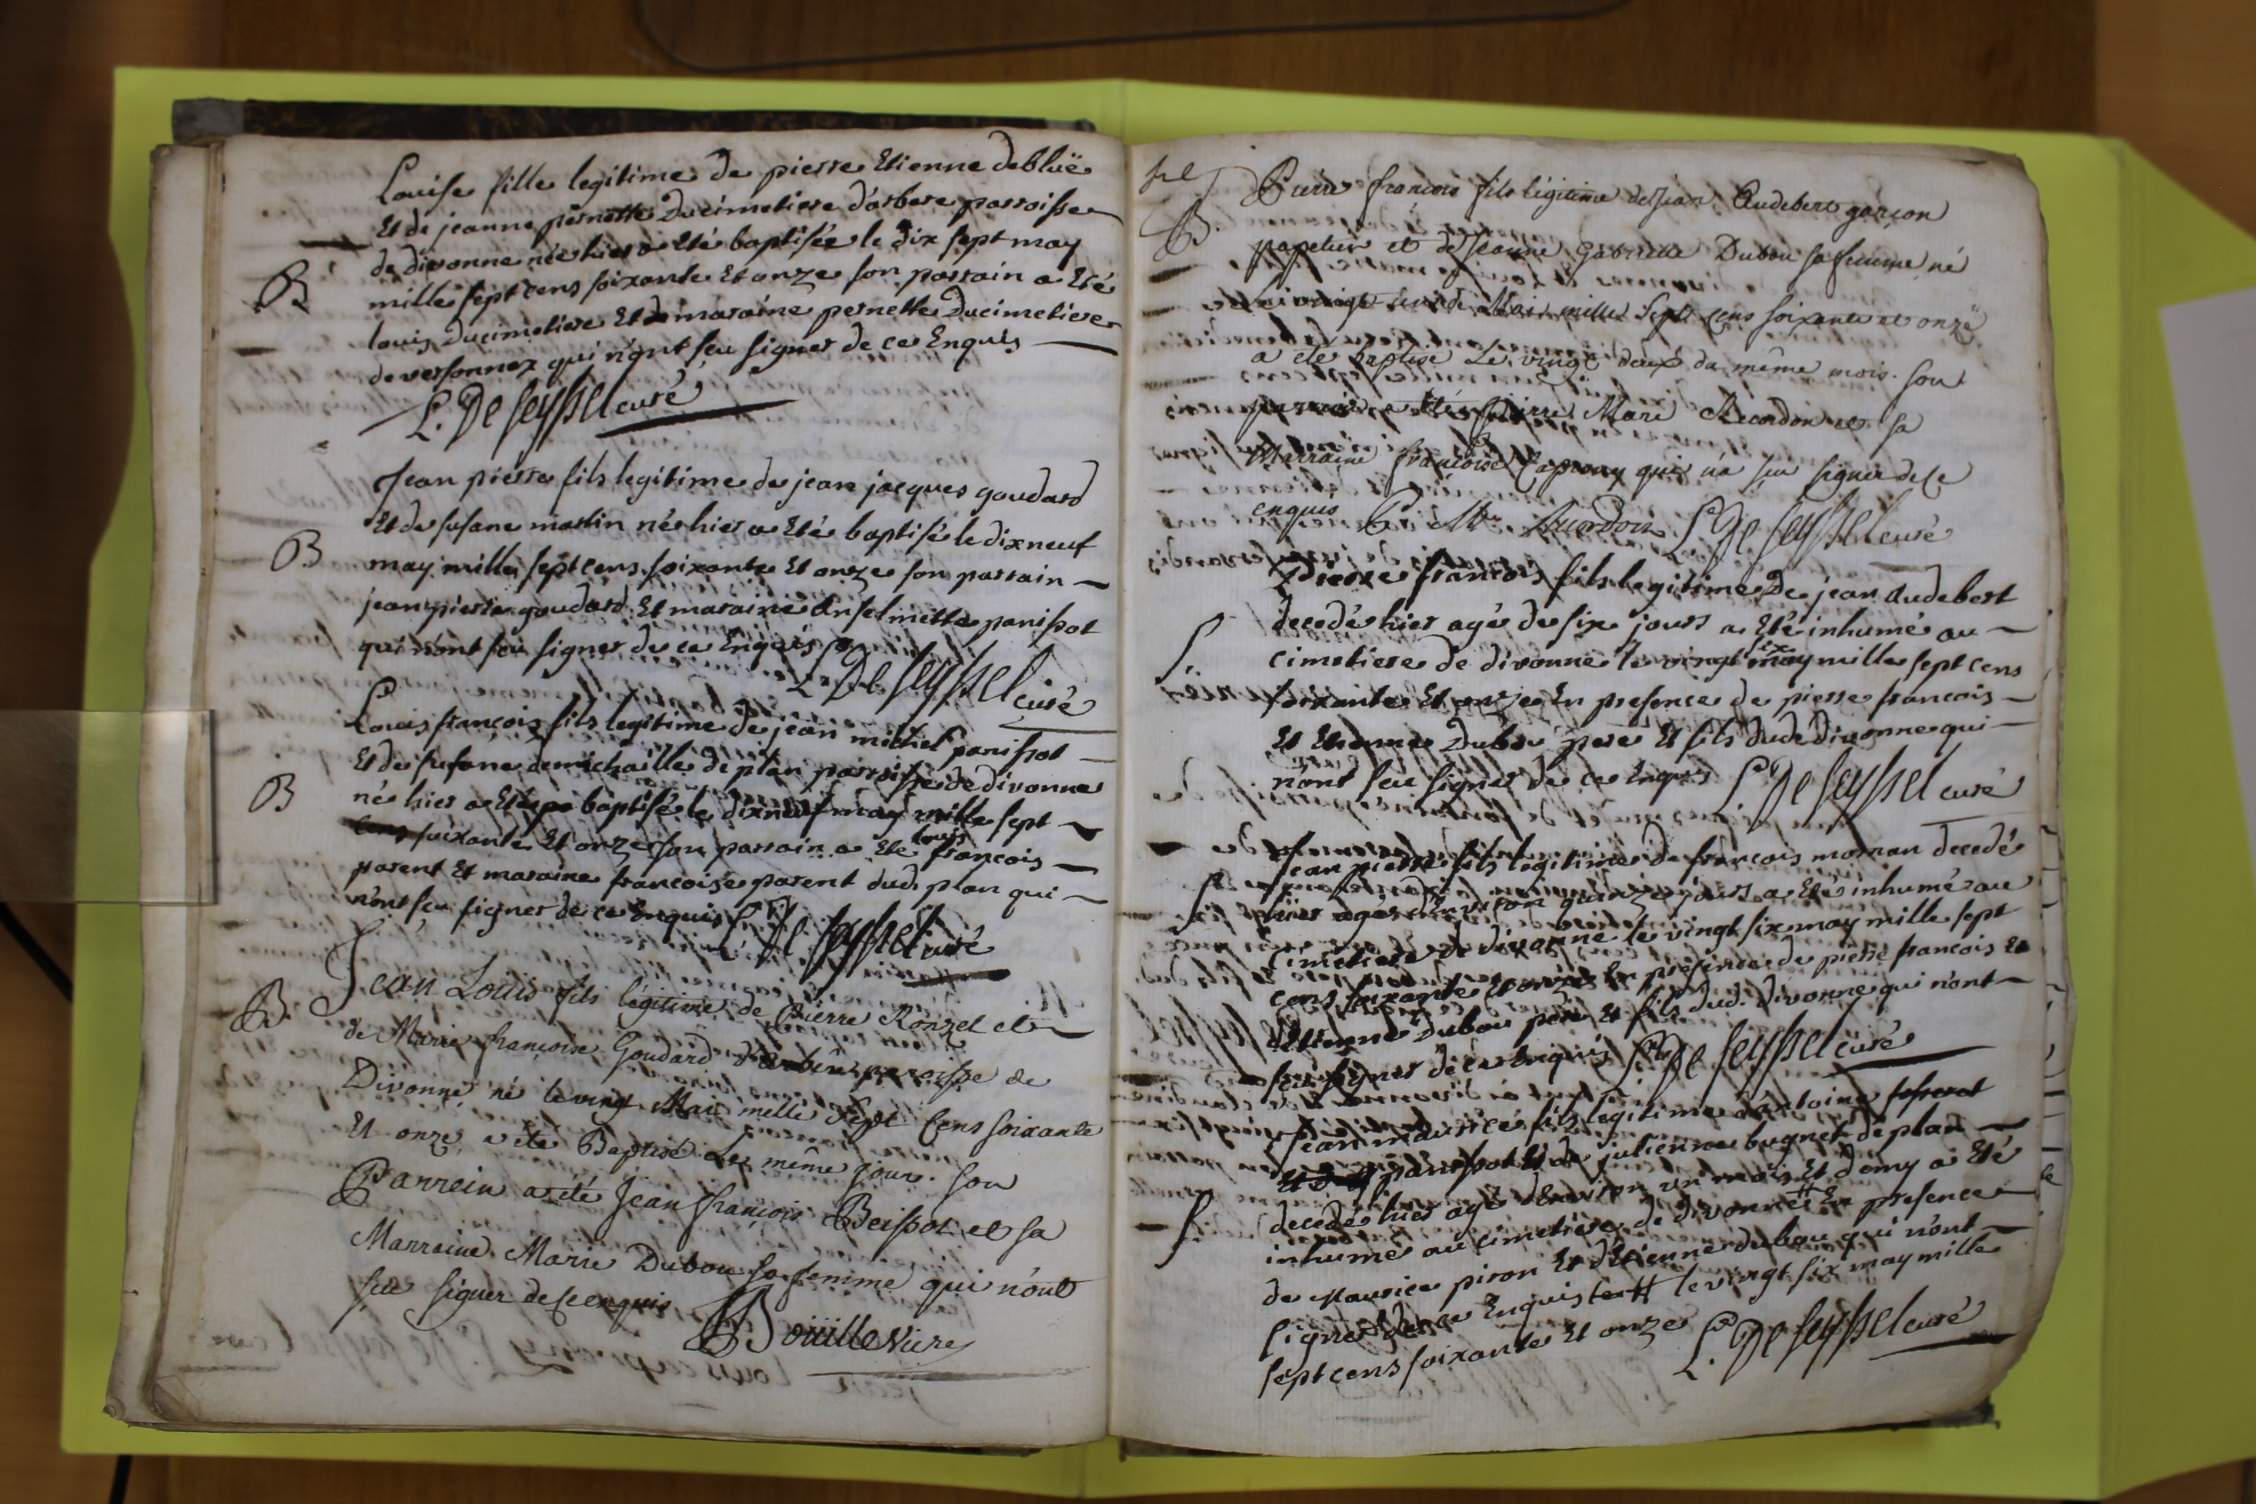 Louise fille legitime de pierre Etienne debluë
Et de jeanne pernette Ducimetiere d'arbere parroisse
de divonne née hier a Eté baptisée le dix sept may
B
mille sept cens soixante Et onze son parrain a Eté
louis Ducimetiere Et maraine pernette Ducimetiere
de versonnex qui n'ont sceu signer de ce Enquis
L. De seyssel curé
Jean pierre fils legitime de jean jacques goudard
Et de susane martin né hier a Eté baptisé le dixneuf
B
may mille sept cens soixante Et onze son parrain
jean pierre goudard Et maraine Anselmette panissot
qui n'ont sceu signer de ce Enquis
L. De seyssel curé
Louis françois fils legitime de jean michel panissot
Et de susane demichaille de plan parroisse de divonne
B
né hier a Eté baptisé le dixneuf may mille sept
cens soixante Et onze son parrain a Eté louis françois
parent Et maraine francoise parent dud. plan qui
n'ont sceu signer de ce Enquis L. De seyssel curé
Jean Louis fils légitime de Pierre Ronzel et
B
de Marie françoise Goudard d'arbere paroisse de
Divonne né le vingt Mai mille Sept Cens soixante
Et onze a été Baptisé Le même jour. son
Parrein a été Jean françois Beissot et sa
Marraine Marie Dubou sa femme qui n'ont
sceu signer de ce enquis
Bouille Vicre
B
Pierre françois fils légitime de Jean Audebert garçon
papetier et de Jeanne Gabrielle Dubou sa femme né
le vingt un de Mai mille Sept Cens soixante et onze
a été baptisé Le vingt deux du même mois. son
parrain a été Pierre Marie Recordon et sa
Marraine françoise Caprony qui n'a sceu signer de ce
enquis
L. De seyssel curé
Pierre francois fils legitime De jean Audebert
decedé hier agé de six jours a Eté inhumé au
S.
cimetiere de divonne le vingt six may mille sept cens
soixante Et onze En presence de pierre francois
Et Etienne Dubou pere Et fils dud. divonne qui
n'ont sceu signer de ce Enquis L. De seyssel curé
Jean pierre fils legitime de françois mornan decedé
S
hier agé d'Environ quinze jours a Eté inhumé au
cimetiere de divonne le vingt six may mille sept
cens soixante Et onze En presence de pierre francois Et
Etienne Dubou pere Et fils dud. divonne qui n'ont
sceu signer de ce Enquis L. De seyssel curé
Jean maurice fils legitime d'antoine
panissot Et de julienne bugnet de plan
decedé hier agé d'Environ un mois Et demy a Eté
S
inhumé au cimetiere de divonne # En presence
de Maurice piron Et d'Etienne dubou qui n'ont
signer de ce Enquis # le vingt six may mille
sept cens soixante Et onze L. De seyssel curé